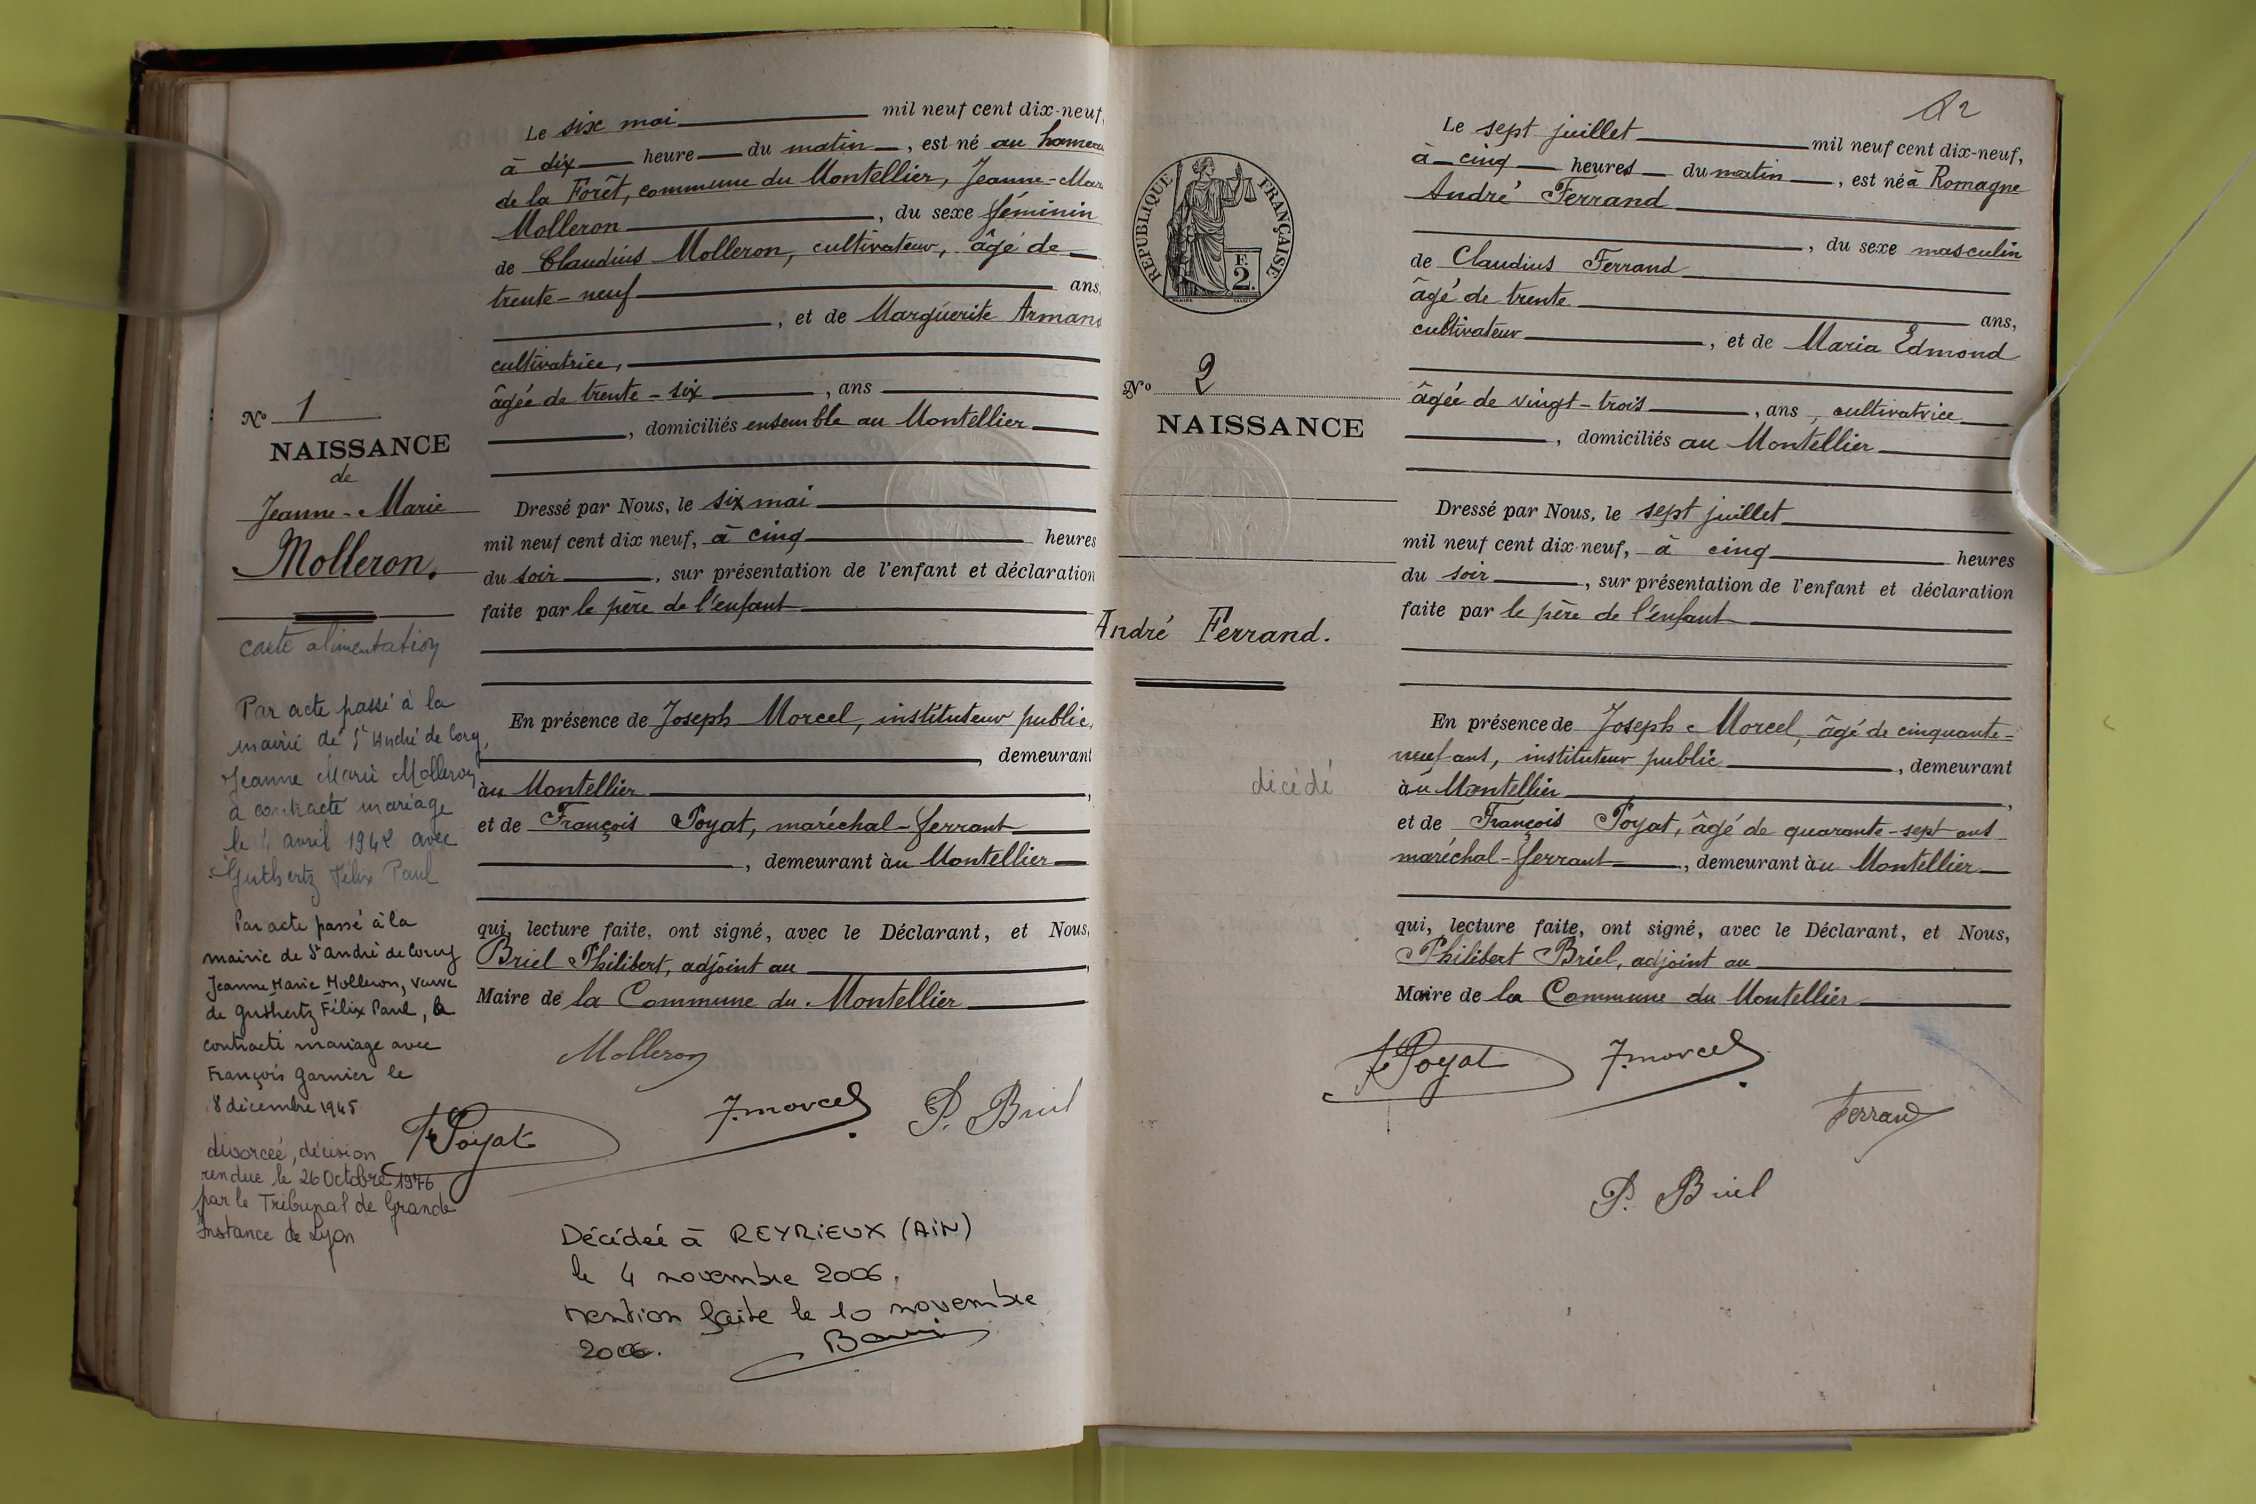 Le six mai mil neuf cent dix-neuf,
à dix heure du matin, est né au hameau
de la Forêt, commune du Montellier, Jeanne-Mar
Molleron, du sexe féminin
de Claudius Molleron, cultivateur, âgé de
trente-neuf ans,
, et de Marguerite Armand
cultivatrice,
âgée de trente-six, ans
, domiciliés ensemble au Montellier
No 1
NAISSANCE
de
Jeanne-Marie
Molleron.
Dressé par Nous, le six mai
mil neuf cent dix neuf, à cinq heures
du soir, sur présentation de l'enfant et déclaration
faite par le père de l'enfant
carte alimentation
Par acte passé à la
mairie de St André de Corcy,
Jeanne Marie Molleron
a contracté mariage
le avril 1942 avec
Guthertz Félix Paul
Par acte passé à la
mairie de St André de Corcy
Jeanne Marie Molleron, veuve
de Guthertz Félix Paul, a
contracté mariage avec
François Garnier le
8 décembre 1945
divorcée, décision
rendue le 26 Octobre 1976
par le Tribunal de Grande
Instance de Lyon
En présence de Joseph Morcel, instituteur public,
, demeurant
àu Montellier,
et de François Poyat, maréchal-ferrant
, demeurant àu Montellier
qui, lecture faite, ont signé, avec le Déclarant, et Nous,
Briel Philibert, adjoint au,
Maire de la Commune du Montellier
Molleron
F Poyat
J. morcel
P. Briel
Décédée à REYRIEUX (AIN)
le 4 novembre 2006.
mention faite le 10 novembre
2006.
82
RÉPUBLIQUE FRANÇAISE
F
2.
No 2
NAISSANCE
André Ferrand.
décédé
Le sept juillet mil neuf cent dix-neuf,
à cinq heures du matin, est né à Romagne
André Ferrand
, du sexe masculin
de Claudius Ferrand
âgé de trente ans,
cultivateur, et de Maria Edmond
âgée de vingt-trois, ans, cultivatrice
, domiciliés au Montellier
Dressé par Nous, le sept juillet
mil neuf cent dix-neuf, à cinq heures
du soir, sur présentation de l'enfant et déclaration
faite par le père de l'enfant
En présence de Joseph Morcel, âgé de cinquante-
neuf ans, instituteur public, demeurant
àu Montellier,
et de François Poyat, âgé de quarante-sept ans
maréchal-ferrant, demeurant àu Montellier
qui, lecture faite, ont signé, avec le Déclarant, et Nous,
Philibert Briel, adjoint au
Maire de la Commune du Montellier
F Poyat
J. morcel
Ferrand
P. Briel